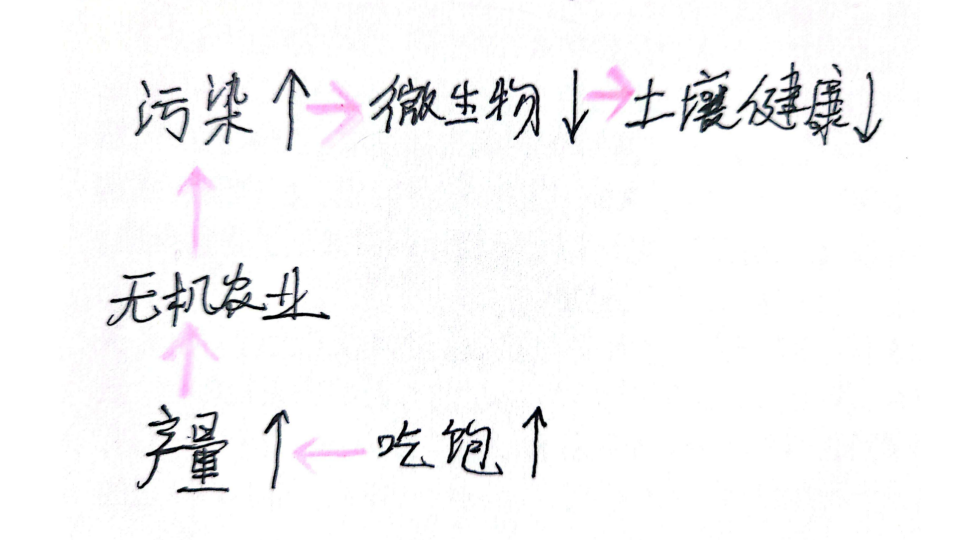 污染↑→微生物↓→土壤健康↓
无机农业
产量↑←吃饱↑